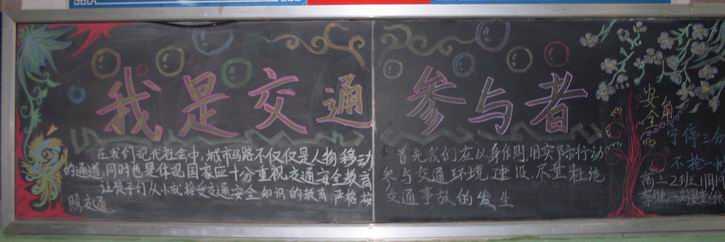 我是交通参与者
在我们现代社会中,城市马路不仅仅是人物移动
的通道,同时也是体现国家应十分重视交通安全教育
让孩子们从小就接受交通安全知识的教育 严格按
照交通
首先我们应以身作则,用实际行动
参与交通环境建设,尽量杜绝
交通事故的发生
安全角
宁停三分
不抢一
高二2班